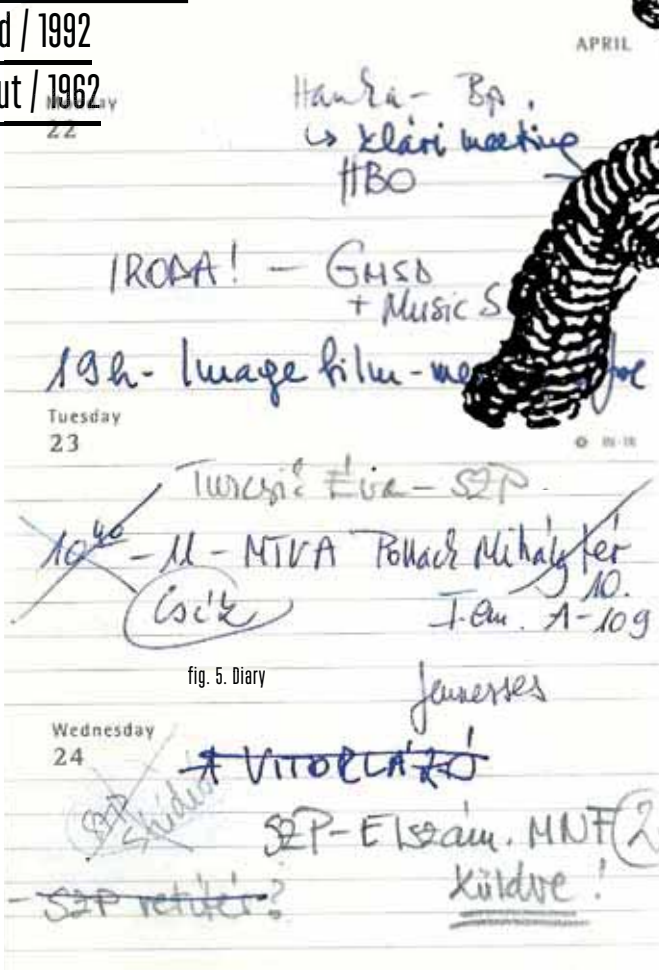 d / 1992
ut / 1962
APRIL
Monday
22
Hanka - Bp.
↳ Klári meeting
HBO
IRODA! - GMSD
+ Music S
19h - Image film -
Tuesday
23
Éva - SZP.
10⁴⁰ - 11 - MTVA Pollack Mihály tér
10.
I. em. A-109
Csík
fig. 5. Diary
Jeunesses
Wednesday
24
A VITORLÁZÓ
SZP Stúdió
SZP - Elszám. MNF 2
Küldve!
- SZP